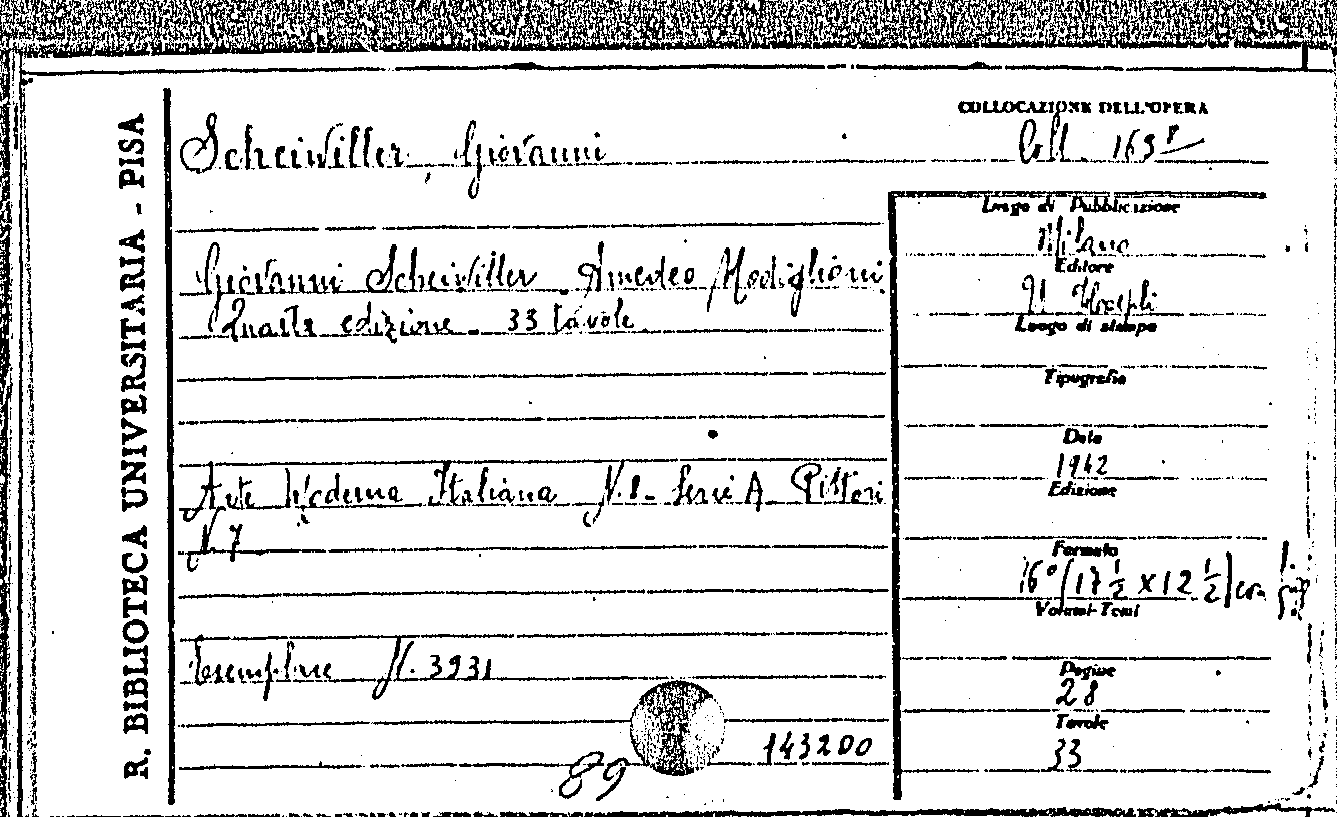 R. BIBLIOTECA UNIVERSITARIA - PISA
COLLOCAZIONE DELL'OPERA
Coll. 163⁸
Scheiwiller, Giovanni
Giovanni Scheiwiller. Amedeo Modigliani.
Quarta edizione. 33 tavole
Arte Moderna Italiana N. 8. Serie A. Pittori
N. 7
Esemplare N. 3931
143200
89
Luogo di Pubblicazione
Milano
Editore
U. Hoepli
Luogo di stampa
Tipografia
Data
1942
Edizione
Formato
16° (17 ½ x 12 ½) con
Volumi-Tomi
Pagine
28
Tavole
33